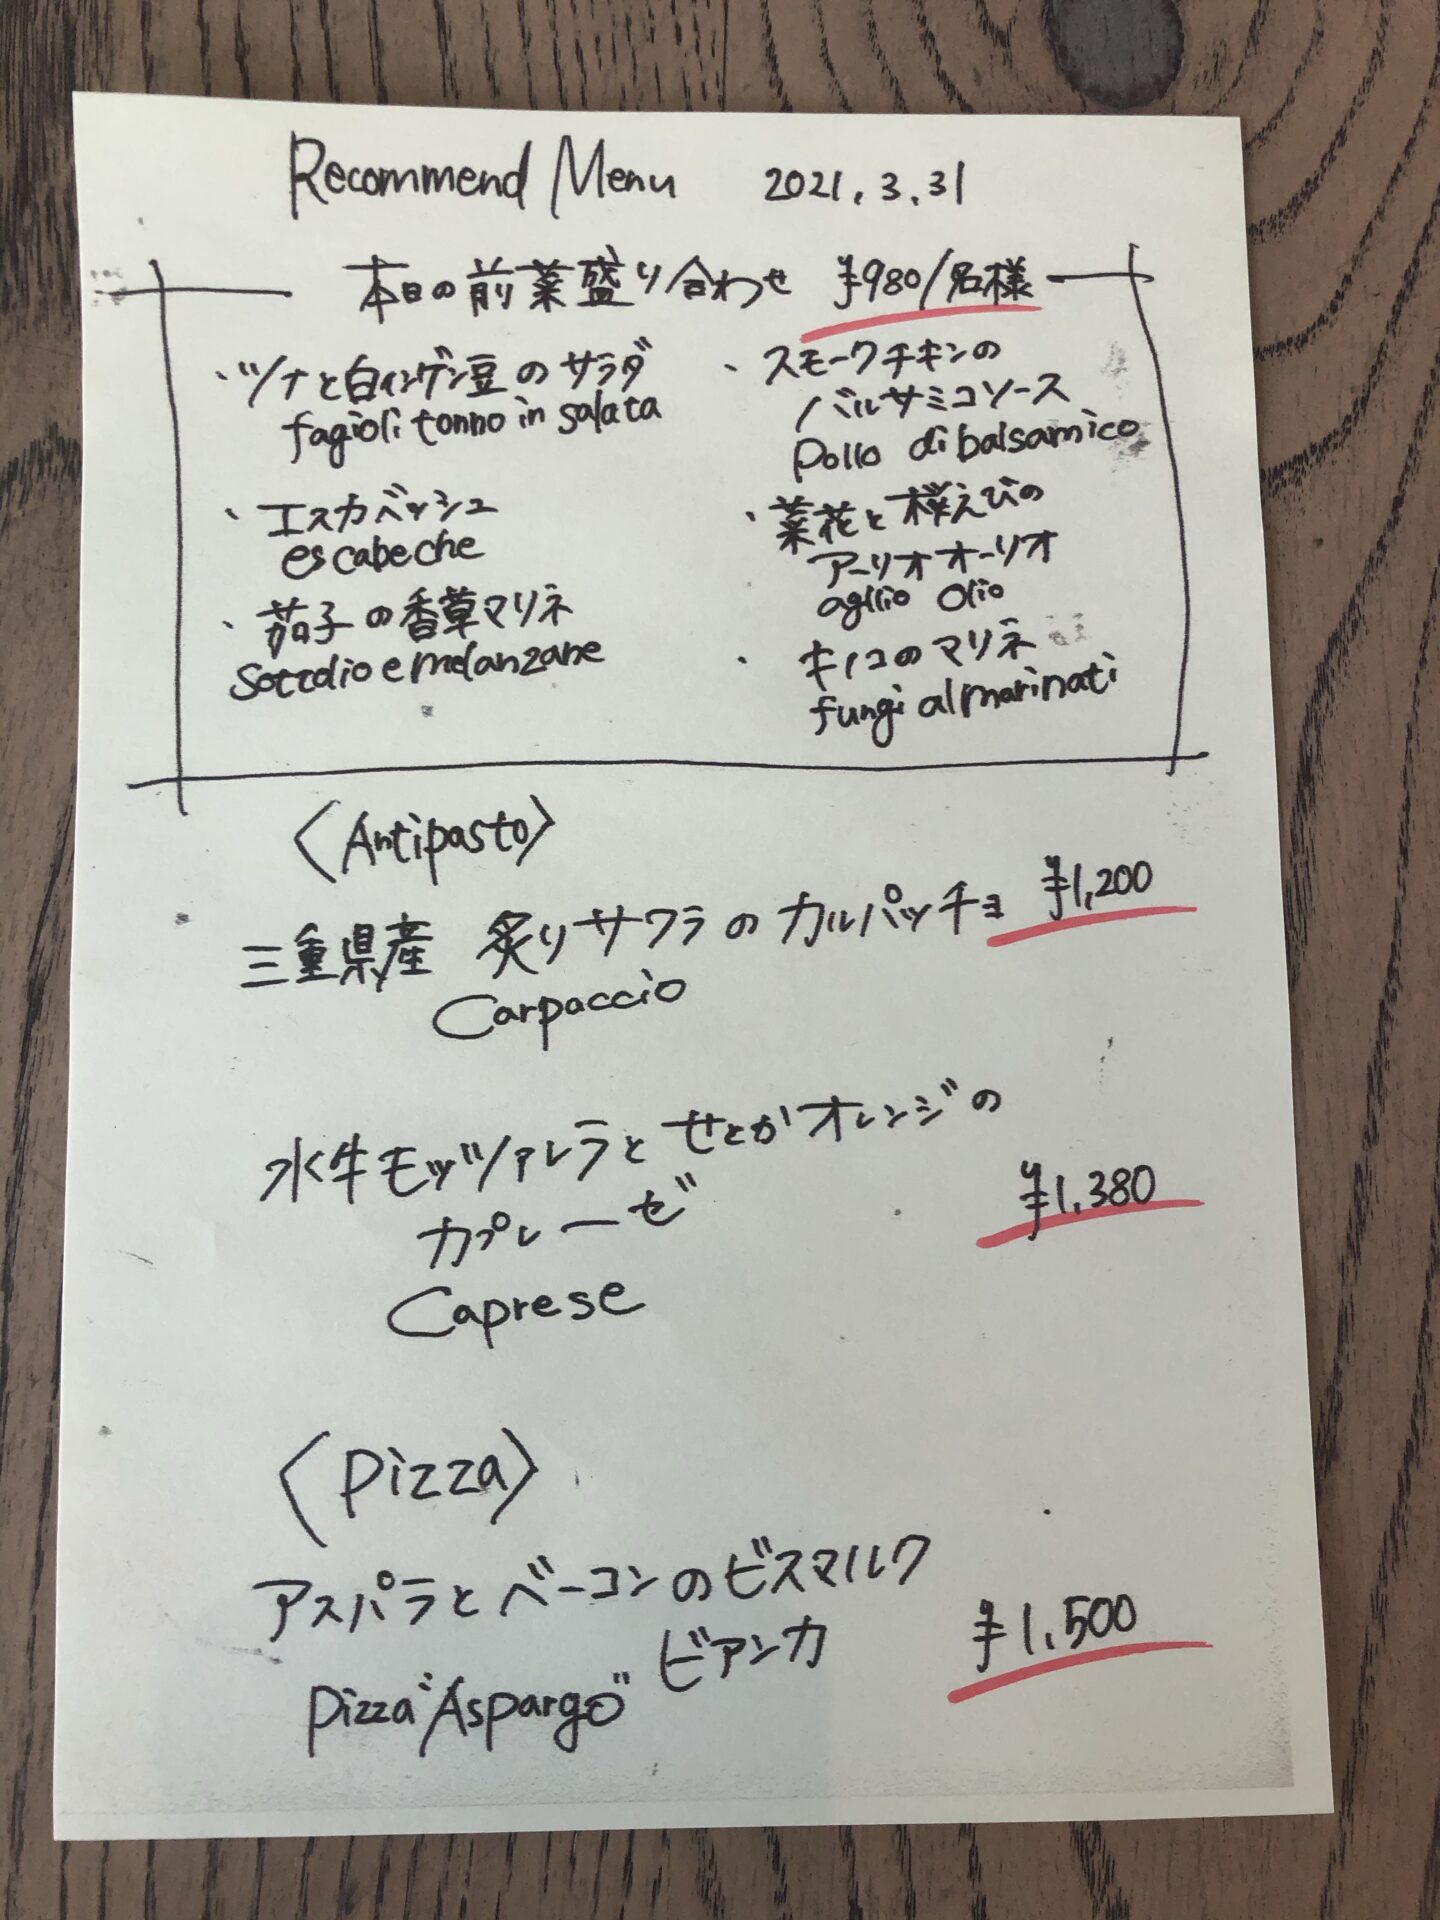 Recommend Menu 2021.3.31
本日の前菜盛り合わせ ¥980/名様
・ツナと白インゲン豆のサラダ
fagioli tonno in salata
・エスカベッシュ
escabeche
・茄子の香草マリネ
Sottolio e melanzane
・スモークチキンの
バルサミコソース
Pollo di balsamico
・菜花と桜えびの
アーリオオーリオ
agllio olio
・キノコのマリネ
fungi al marinati
〈Antipasto〉
三重県産 炙りサワラのカルパッチョ ¥1,200
Carpaccio
水牛モッツァレラとせとかオレンジの
カプレーゼ ¥1,380
Caprese
〈Pizza〉
アスパラとベーコンのビスマルク
ビアンカ ¥1,500
Pizza "Aspargo"